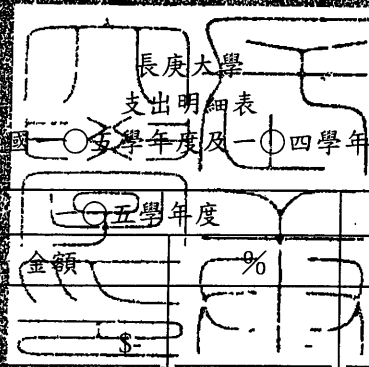 長庚大學
支出明細表
國一〇五學年度及一〇四學年
一〇五學年度
金額 %
$- -